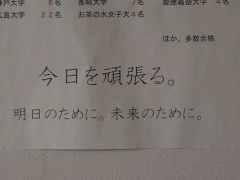 神戸大学 8名 長崎大学 7名 慶應義塾大学 4名
広島大学 22名 お茶の水女子大 4名
ほか、多数合格
今日を頑張る。
明日のために。未来のために。